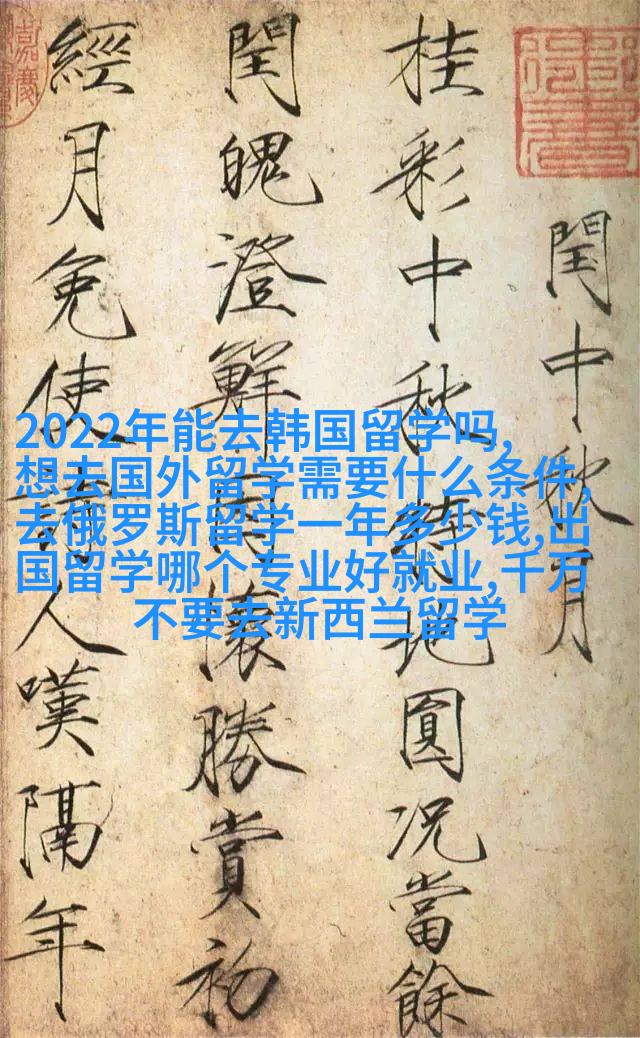 閏中秋月
桂彩中秋特地圓况當餘
閏魄澄鮮因懷勝賞初
經月免使詩人嘆隔年
2022年能去韩国留学吗,
想去国外留学需要什么条件,
去俄罗斯留学一年多少钱,出
国留学哪个专业好就业,千万
不要去新西兰留学